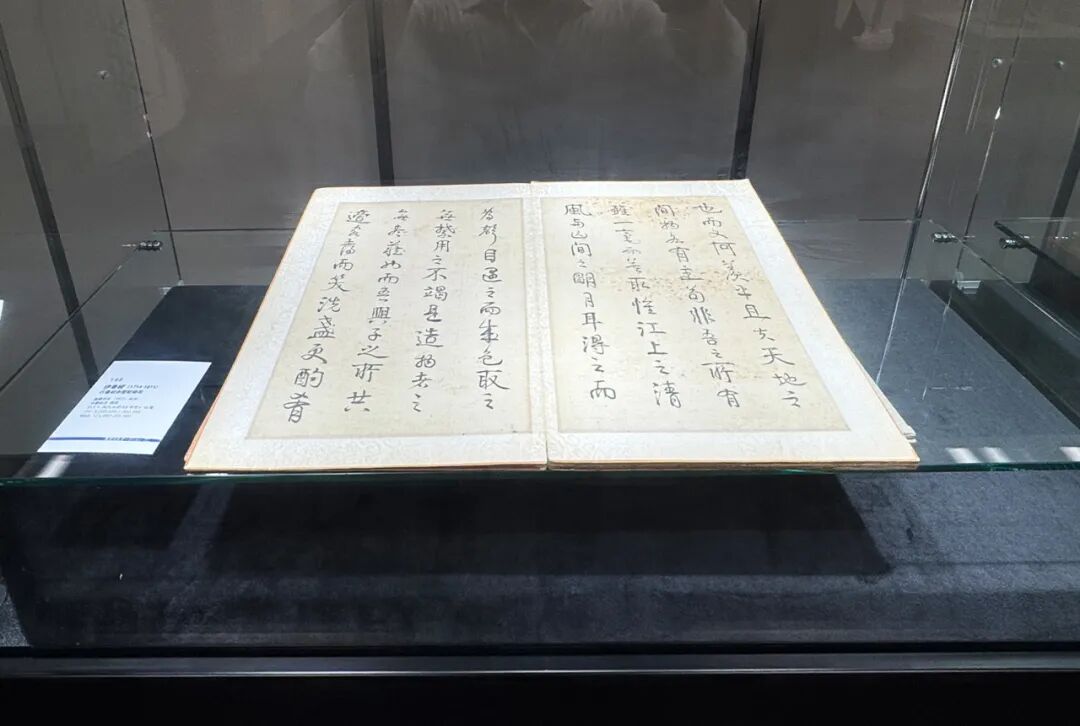 也而又何羨乎且夫天地之
間物各有主苟非吾之所有
雖一毫而莫取惟江上之清
風与山間之明月耳得之而
為聲目遇之而成色取之
無禁用之不竭是造物者之
無尽藏也而吾與子之所共
適客喜而笑洗盞更酌肴
伊秉綬 (1754-1815)